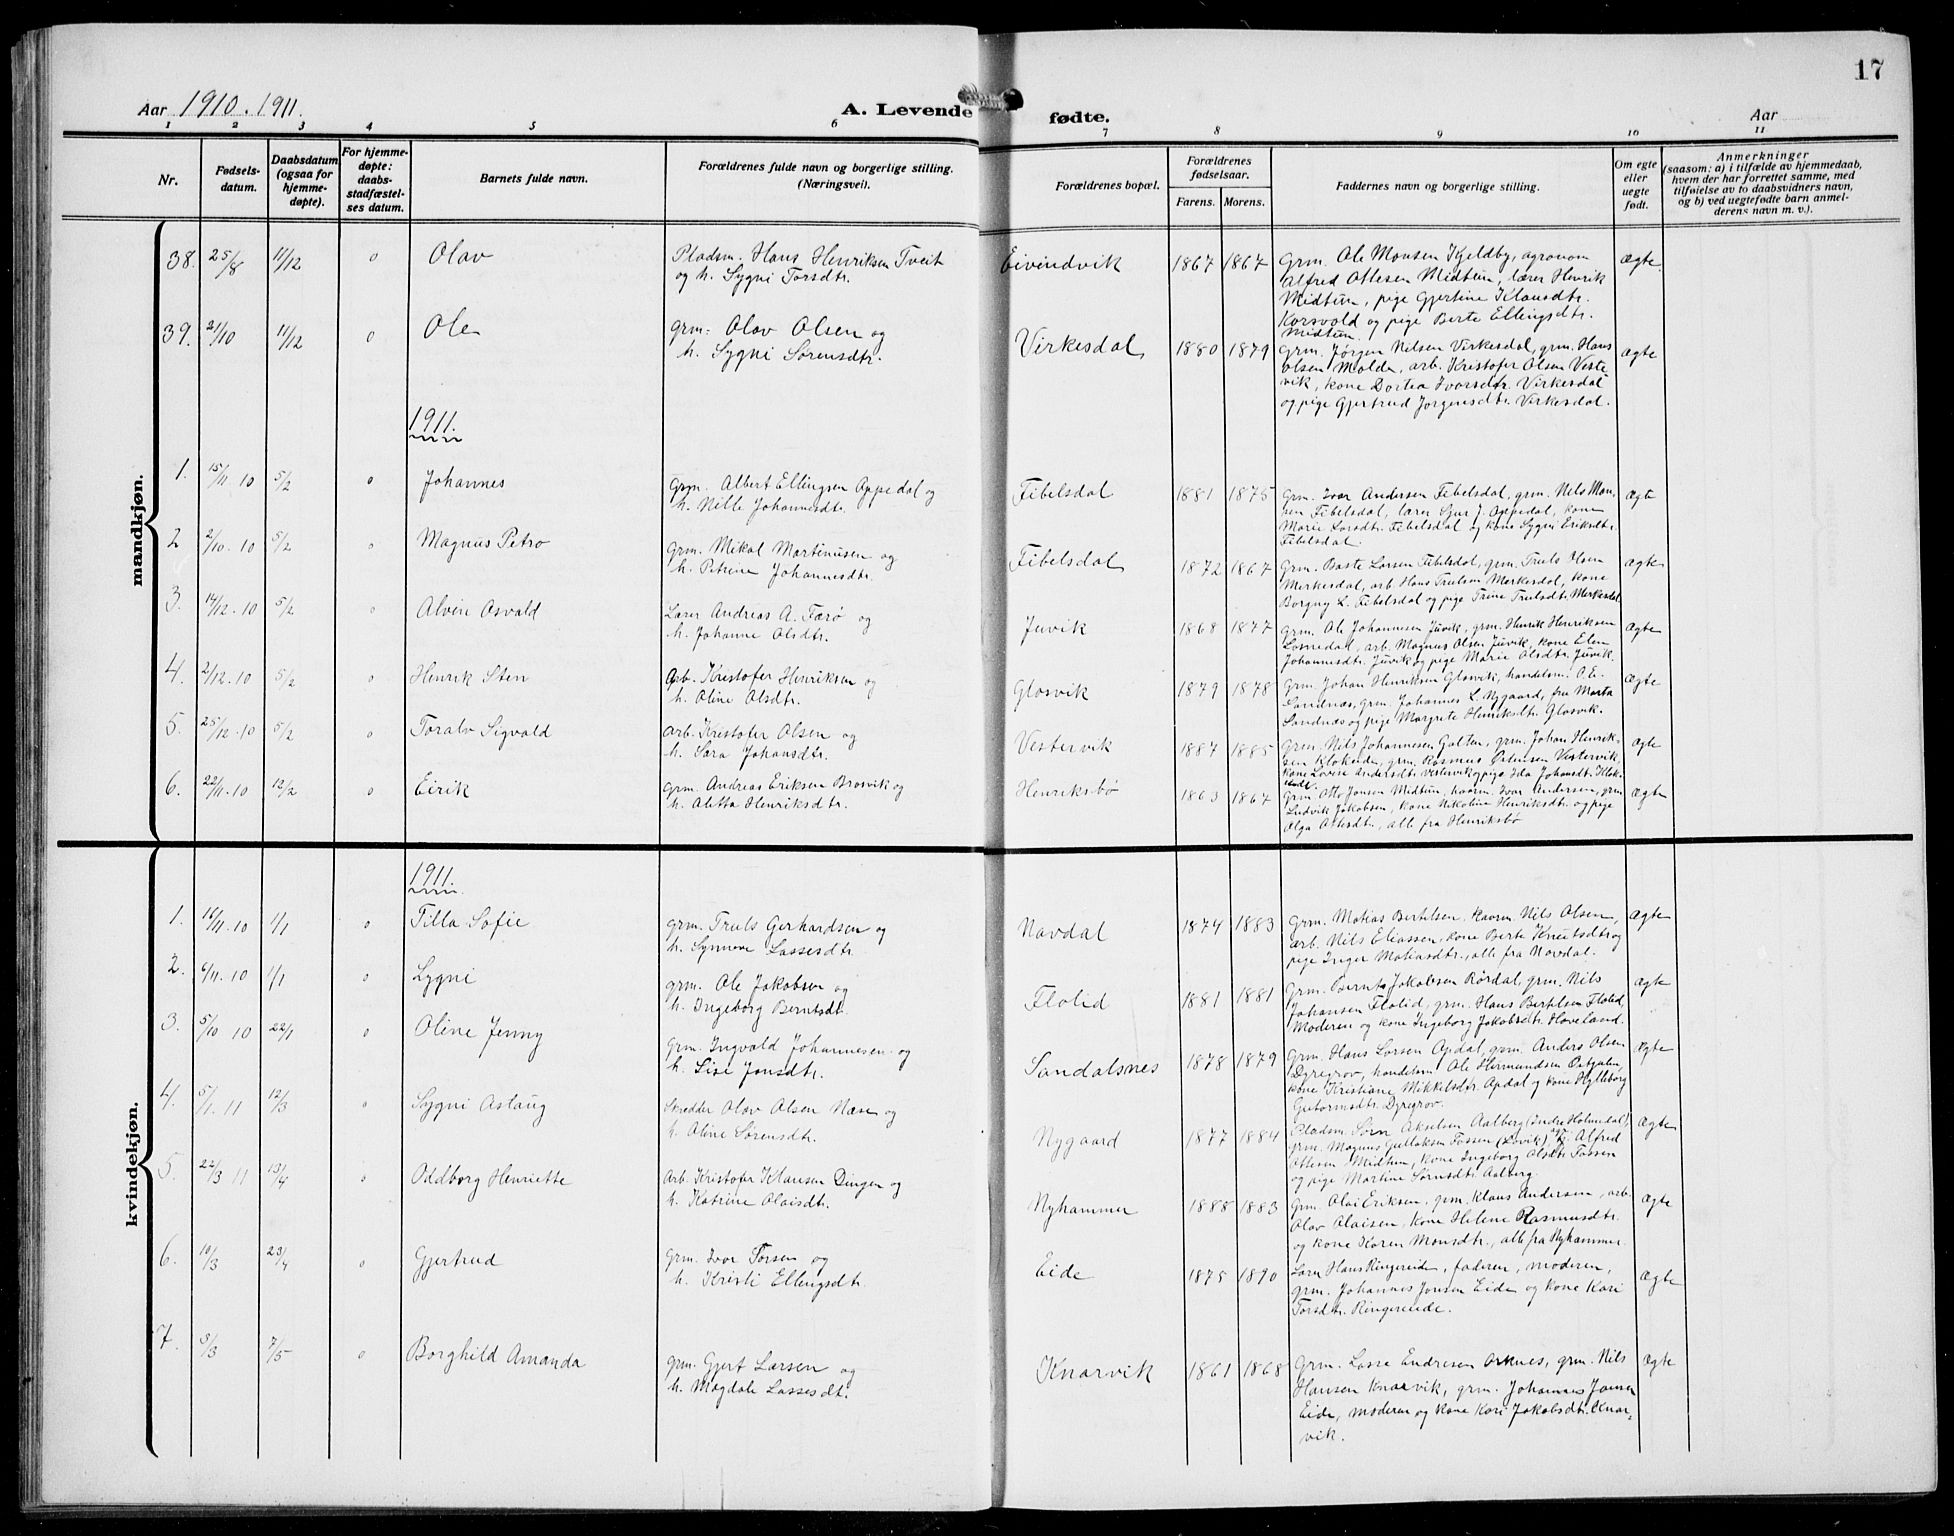 17
Aar 1910. 1911.
A. Levende fødte.
Aar
1 2 3 4 5 6 7 8 9 10 11
Nr.
Fødsels-
datum.
Daabsdatum
(ogsaa for
hjemme-
døpte).
For hjemme-
døpte:
daabs-
stadfæstel-
ses datum.
Barnets fulde navn.
Forældrenes fulde navn og borgerlige stilling.
(Næringsvei).
Forældrenes bopæl.
Forældrenes
fødselsaar.
Farens. Morens.
Faddernes navn og borgerlige stilling.
Om egte
eller
uegte
født.
Anmerkninger
(saasom: a) i tilfælde av hjemmedaab,
hvem der har forrettet samme, med
tilføielse av to daabsvidners navn,
og b) ved uegtefødte barn anmel-
derens navn m. v.).
mandkjøn.
38. 25/8 11/12 0 Olav
Pladsm. Hans Henriksen Tveit
og h. Sygni Torsdtr.
Eivindvik 1867 1867
Grm. Ole Monsen Kjeldby, agronom
Alfred Ottesen Midtun, lærer Henrik
Midtun, pige Gjertine Klausdtr.
Korsvold og pige Berte Ellingsdtr.
Midtun.
Ægte.
39. 21/10 11/12 0 Ole
grm. Olav Olsen og
h. Sygni Sørensdtr.
Virkesdal 1880 1879
Grm. Jørgen Nilsen Virkesdal, grm. Hans
Olsen Molde, arb. Kristofer Olsen Veste
vik, kone Dortea Ivarsdtr. Virkesdal
og pige Gjertrud Jørgensdtr. Virkesdal.
Ægte
1911.
1. 15/11. 10 5/2 0 Johannes
Grm. Albert Ellingsen Appedal og
h. Nille Johannesdtr.
Tibelsdal 1881 1875
Grm. Ivar Andersen Tibelsdal, grm. Nils Mon-
sen Tibelsdal, lærer Sjur J. Appedal, kone
Marie Larsdtr. Tibelsdal og kone Sygni Eriksdtr.
Tibelsdal.
Ægte
2 2/10. 10 5/2 0 Magnus Petro
grm. Mikal Martinusen og
h. Petrine Johannesdtr.
Tibelsdal 1872 1867
Grm. Baste Larsen Tibelsdal, grm. Truls Olsen
Merkesdal, arb. Hans Trulsen Merkesdal, kone
Borgny L. Tibelsdal og pige Trine Trulsdtr. Merkesdal
Ægte
3. 14/12. 10 5/2 0 Alvin Asvald
Lærer Andreas A. Færø og
h. Johanne Olsdtr.
Juvik 1868 1877
Grm. Ole Johannesen Juvik, grm. Henrik Henriksen
Losnedal, arb. Magnus Olsen Juvik, kone Elen
Johannesdtr. Juvik og pige Marie Olsdtr. Juvik.
Ægte
4. 2/12. 10 5/2 0 Henrik Sten
Arb. Kristofer Henriksen og
h. Oline Olsdtr.
Glosvik 1879 1878
Grm. Johan Henriksen Glosvik, handelsm. O. E.
Sandnæs, grm. Johannes L. Nygaard, fru Marta
Sandnæs og pige Margrete Henriksdtr. Glosvik.
Ægte
5. 25/12. 10 5/2 0 Toralv Sigvald
arb. Kristofer Olsen og
h. Sara Johansdtr.
Vestervik 1887 1885
Grm. Nils Johannesen Galten, grm. Johan Henrik-
sen Klokeide, grm. Rasmus Ostensen Vestervik,
kone Lovise Andersdtr. Vestervik og pige Ida Johansdtr. Klok-
eide.
Ægte
6. 22/11. 10 12/2 0 Eirik
grm. Andreas Eriksen Brosvik og
h. Aletta Henriksdtr.
Henriksbø 1863 1867
Grm. Otto Jonsen Midtun, kaarm. Ivar Andersen, grm.
Ludvik Jakobsen, kone Nikoline Henriksdtr. og pige
Olga Ottesdtr., alle fra Henriksbø
Ægte
kvindekjøn.
1911.
1. 16/11. 10 1/1 0 Tilla Sofie
grm. Truls Gerhardsen og
h. Synnøve Lassesdtr.
Navdal 1874 1883
Grm. Matias Bertelsen, kaarm. Nils Olsen,
arb. Nils Eliassen, kone Berte Knutsdtr og
pige Inger Matiasdtr., alle fra Navdal.
Ægte
2. 6/11. 10 1/1 0 Lygni
grm. Ole Jakobsen og
h. Ingeborg Berntsdtr.
Flolid 1881 1881
Grm. Bernt Jakobsen Rørdal, grm. Nils
Johansen Flolid, grm. Hans Bertelsen Flolid
Moderen og kone Ingeborg Jakobsdtr. Haveland.
Ægte
3. 5/10 10 22/1 0 Oline Jenny
Grm. Ingvald Johannesen og
h. Lise Jonsdtr.
Sandalsnes 1878 1879
Grm. Hans Larsen Apdal, grm. Anders Olsen
Dyregrov, handelsm. Ole Hermundsen Ostgulen,
kone Kristiane Mikkelsdtr. Apdal og kone Hylleborg
Gutormsdtr. Dyregrov.
Ægte
4. 5/1. 11 12/3 0 Sygni Aslaug
Skredder Olav Olsen Næse og
h. Oline Sørensdtr.
Nygaard 1877 1884
Pladsm. Sørn Akselsen Aalberg (Indre Holmedal),
grm. Magnus Gullaksen Fossen (Lavik), agr. Alfred
Ottesen Midtun, kone Ingeborg Olsdtr. Fossen
og pige Martine Sørnsdtr. Aalberg.
Ægte
5. 22/3 11 17/4 0 Oddborg Henriette
Arb. Kristofer Klausen Dingen og
h. Katrine Olaisdtr.
Nyhammer 1888 1883
Grm. Olai Eriksen, grm. Klaus Andersen, arb.
Olav Olaisen, kone Helene Rasmusdtr.
og kone Karen Monsdtr., alle fra Nyhammer.
Ægte
6. 10/3 23/4 0 Gjertrud
Grm. Ivar Torsen og
h. Kristi Ellingsdtr.
Eide 1875 1890
Lærer Hans Ringereide, faderen, moderen,
grm. Johannes Jonsen Eide og kone Kari
Torsdtr. Ringereide.
Ægte
7. 5/3 7/5 0 Borghild Amanda
grm. Gjert Larsen og
h. Magdale Lassesdtr.
Knarvik 1861 1868
Grm. Lasse Endresen Arknes, grm. Nils
Hansen Knarvik, grm. Johannes Jonsen
Eide, moderen og kone Kari Jakobsdtr. Knar-
vik.
Ægte